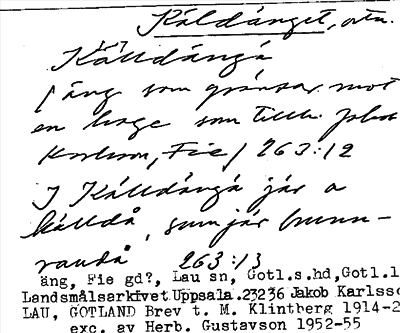 Käldänget, ortn.
Källdängä
(äng som gränsar mot
en hage som tillh. Joh
Karlsson, Fie) 263:12
I Källdängä jär a
källdå, sum jär brunn-
263:13
äng, Fie gd?, Lau sn, Gotl.s.hd,Gotl.l
Landsmålsarkivet Uppsala.23236 Jakob Karlsso
LAU, GOTLAND Brev t. M. Klintberg 1914-2
exc. av Herb. Gustavson 1952-55